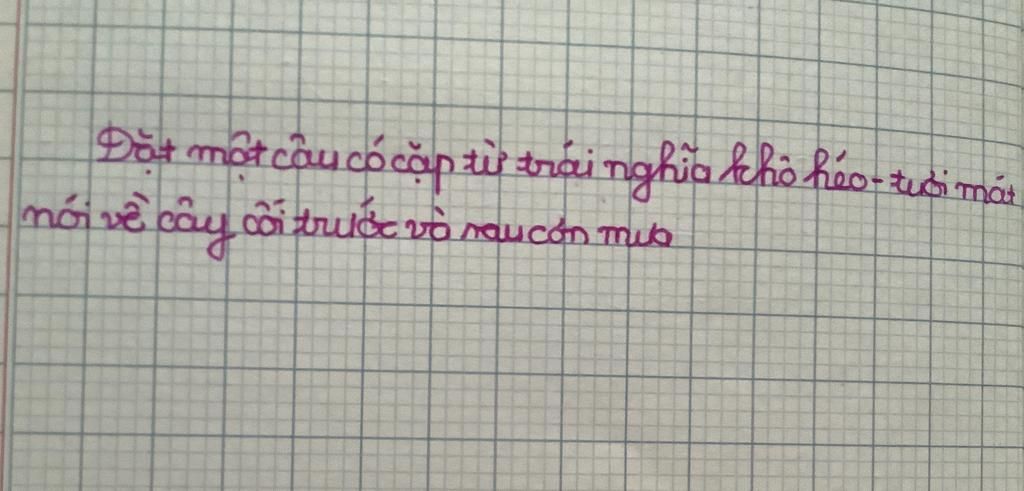 Đặt một câu có cặp từ trái nghĩa khô héo - tươi mát
nói về cây cối trước và sau cơn mưa